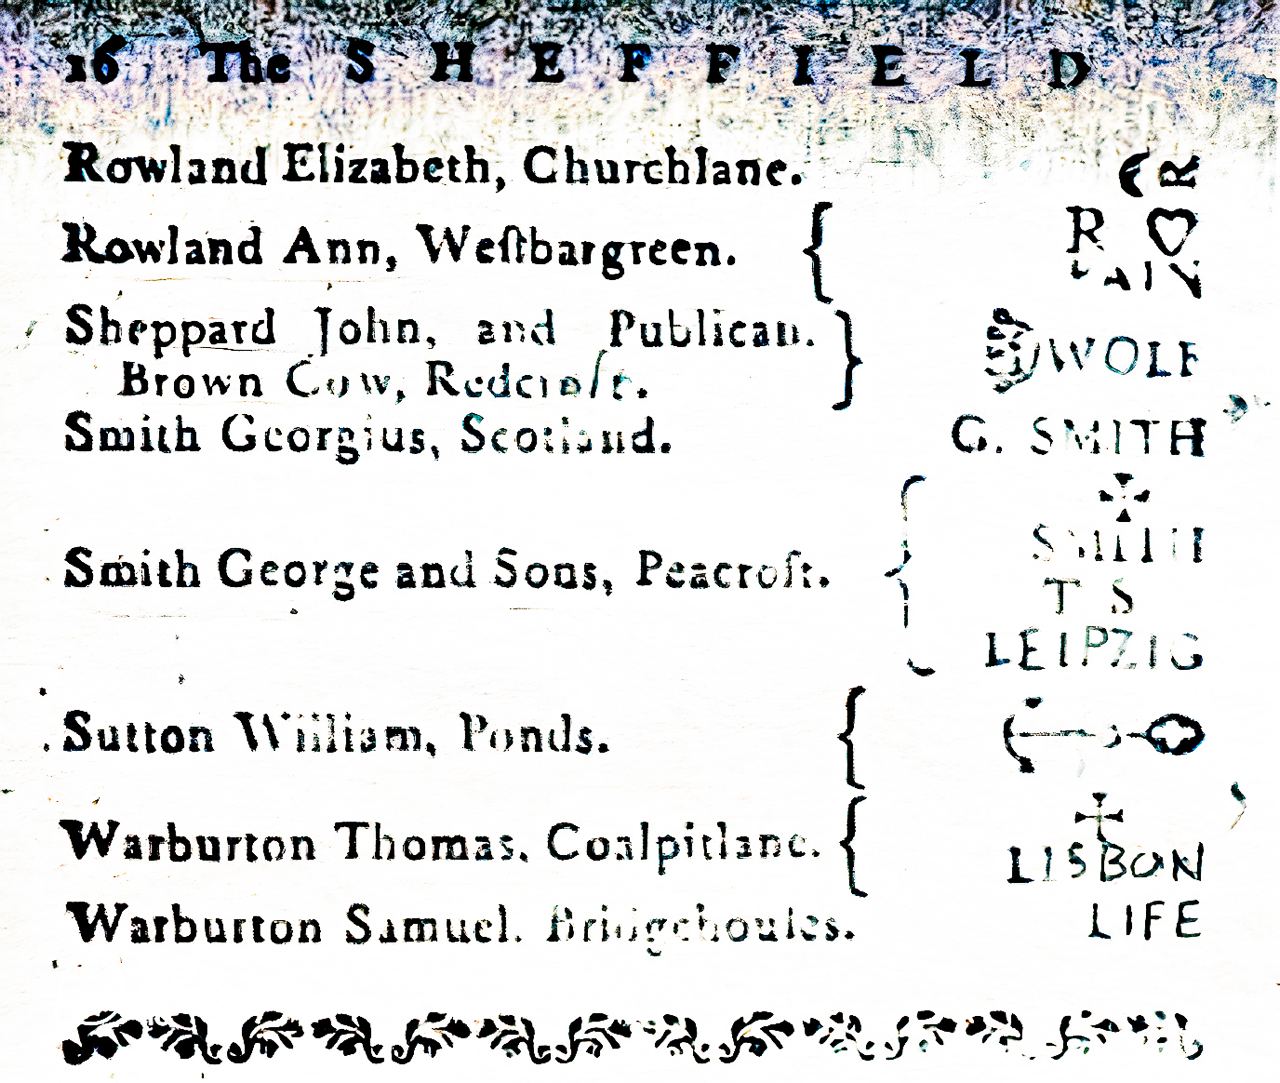 16 The SHEFFIELD
Rowland Elizabeth, Churchlane. R
Rowland Ann, Weſtbargreen. R
PAIN
Sheppard John, and Publican.
Brown Cow, Redcroſt. WOLF
Smith Georgius, Scotland. G. SMITH
Smith George and Sons, Peacroft.
SMITH
T S
LEIPZIG
Sutton William, Ponds.
Warburton Thomas, Coalpitlane.
LISBON
Warburton Samuel. Bridgehouſes. LIFE